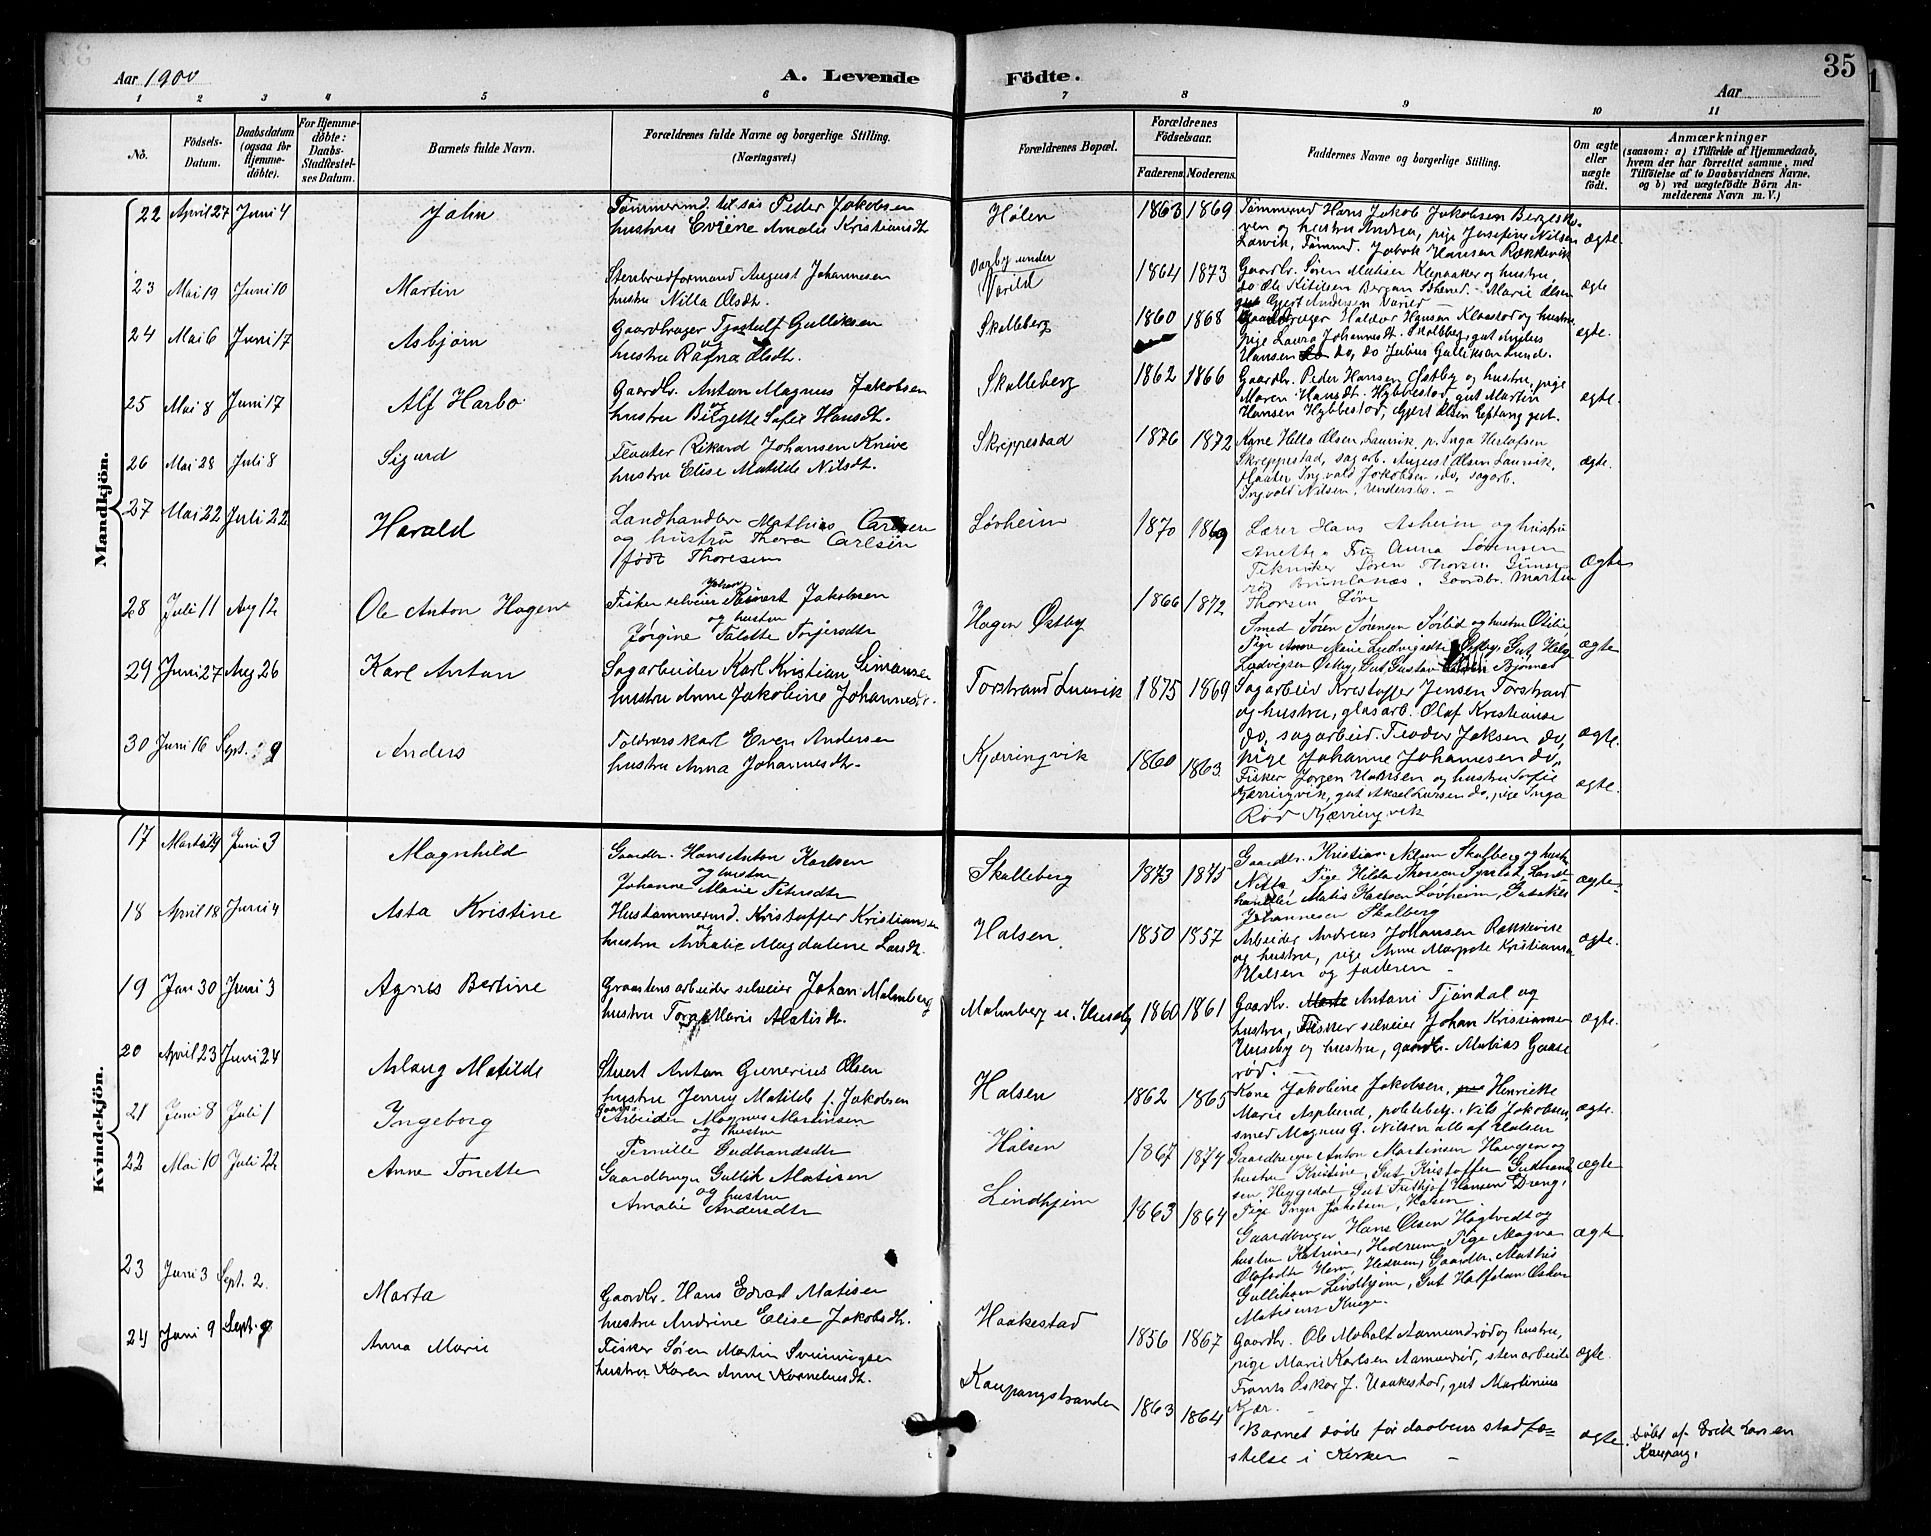 Aar 1900
A. Levende
Födte.
Aar
35
1 2 3 4 5 6 7 8 9 10 11
No.
Födsels-Datum.
Daabsdatum (ogsaa for Hjemme-döbte).
For Hjemme-döbte: Daabs-Stadfæstel-ses Datum.
Barnets fulde Navn.
Forældrenes fulde Navne og borgerlige Stilling.
(Næringsvei.)
Forældrenes Bopæl.
Forældrenes Födselsaar.
Faderens. Moderens.
Faddernes Navne og borgerlige Stilling.
Om ægte eller uægte födt.
Anmærkninger
(saasom: a) i Tilfælde af Hjemmedaab, hvem der har forrettet samme, med Tilföielse af to Daabsvidners Navne. og b) ved uægtefödte Börn An-melderens Navn m. V.)
Mandkjön.
22 April 27 Juni 4 John
Peder Jakobsen
hustru Amalie Kristiansdt.
Hølen 1863 1869
Tømmermd Hans Jakob Jakobsen
ven og hustru Andrea, pige Josefine Nilsen
Larvik, Tømmd. Jakob Hansen Rækkevik
ægte.
23 Mai 19 Juni 10 Martin
Stenbrudformand August Johannesen
hustru Nilla Olsdt.
Varby under
Varild
1864 1873
Gaardbr. Søren Matisen Klepaaker og hustru,
do Ole Kittilsen Bergan Marie Olsen
Gjert Andersen Varild
ægte
24 Mai 6 Juni 17 Asbjørn
Gaardbruger Tjostulf Gulliksen
og
hustru Ragna Olsdt.
Skalleberg 1860 1868
Gaardbruger Haldor Hansen Klaastad og hustru
pige Laura Johannesdt. Skalleberg, gut Anders
Hansen do, do Julius Gulliksen Lund.
ægte.
25 Mai 8 Juni 17 Alf Harbo
Gaardbr. Anton Magnus Jakobsen
og
hustru Birgitte Sofie Hansdt.
Skalleberg 1862 1866
Gaardbr. Peder Hansen Østby og hustru, pige
Maren Hansdt. Hybbestad, gut Martin
Hansen Hybbestad, Gjert Olsen Eftang gut.
ægte.
26 Mai 28 Juli 8 Sigurd
Fløater Rikard Johansen Knive
hustru Elise Matilde Nilsdt.
Skreppestad 1876 1872
Kone Hilla Olsen, Laurvik, p. Inga Herlofsen
Skreppestad, sagarb. August Olsen Laurvik,
Fløater Ingvald Jakobsen, do, sagarb.
Ingvald Nilsen, Undersbo. –
ægte.
27 Mai 22 Juli 22 Harald
Landhandler Mathias Carlsen
og hustru Thora Carlsen
født Thoresen
Løvheim 1870 1869
Lærer Hans Asheim og hustru
Anette, Fru Anna Sørensen
Tekniker Søren Thorsen
rød Brunlanæs. Gaardbr. Martin
Thorsen Løve
Ægte
28 Juli 11 Aug 12 Ole Anton Hagen
Johan
Fisker selveier Reinert Jakobsen
og hustru
Jørgine Talette Torjersdtr
Hagen Østby 1866 1872
Smed Søren Sørensen Sørlid og hustru Otilie,
Pige Marie Ludvigsdtr Østby, Gut Helge
Ludvigsen Østby, Gut Gustav Bjønnes
ægte
29 Juni 27 Aug 26 Karl Anton
Sagarbeider Karl Kristian Simonsen
hustru Anne Jakobine Johannesdt.
Torstrand Laurvik 1875 1869
Sagarbeid Kristoffer Jensen Torstrand
og hustru, glasarb. Olaf Kristianse
do, sagarbeid. Teodor Jaksen do,
pige Johanne Johannesen do,
ægte.
30 Juni 16 Sept. 9 Anders
Toldvarskarl Even Andersen
hustru Anna Johannesdt.
Kjærringvik 1860 1863
Fisker Jørgen Hansen og hustru Sofie
Kjærringvik, gut Aksel Larsen do, pige Inga
Rød Kjærringvik
ægte.
Kvindekjön.
17 Marts 24 Juni 3 Magnhild
Gaardbr. Hans Anton Karlsen
og hustru
Johanne Marie Petersdtr
Skalleberg 1873 1875
Gaardbr. Kristian Nilsen Skalberg og hustru
Netta, Pige Hilda Thorsen Syrlid, Land-
handler Matis Karlsen Løvheim, Gut
Johannesen Skalberg
ægte
18 April 18 Juni 4 Asta Kristine
Hustømmermd. Kristoffer Kristiansen
og
hustru Amalie Magdalene Larsdt.
Halsen. 1850 1857
Arbeider Andreas Johansen Rækkevik
og hustru, pige Anne Margrete Kristiansen
Halsen og faderen –
ægte.
19 Jan 30 Juni 3 Agnes Bertine
Graastensarbeider selveier Johan Malmberg
hustru Marie Matisdt.
Malmberg u. Huseby 1860 1861
Gaardbr. Antoni Tjøndal og
hustru, Fisker selveier Johan Kristiansen
Huseby og hustru, gaardbr. Matias Gaase
rød. –
ægte.
20 April 23 Juni 24 Aslaug Matilde
Stuert Anton Gunerius Olsen
hustru Jenny Matilde f. Jakobsen
Halsen 1862 1865
Kone Jakobine Jakobsen, Henriette
Marie Asplund, politibetj. Nils Jakobsen
smed Magnus G. Nilsen alle af Halsen
ægte.
21 Juni 8 Juli 1 Ingeborg
Arbeider Magnus Martinsen
og hustru
Pernille Gudbrandsdtr
Halsen 1867 1874
Gaardbruger Anton Martinsen Haugen og
hustru Kristine, Gut Kristoffer Gudbrand
sen, Heggedal, Gut Fritjof Hansen Dreng,
Pige Inger Jakobsen, Halsen.
ægte
22 Mai 10 Juli 22 Anne Tonette
Gaardbruger Gullik Matisen
og hustru
Amalie Andersdtr
Lindhjem 1863 1864
Gaardbruger Hans Olsen Hagtvedt og
hustru Katrine, Hedrum, Pige Magna
Olafsdtr Hem, Hedrum, Gaardbr. Mathis
Gulliksen Lindhjem, Gut Halfdan Oskar
Matisen
ægte
23 Juni 3 Sept. 2. Marta
Gaardbr. Hans Edvart Matisen
hustru Andrine Elise Jakobsdt.
Haakestad 1856 1867
Gaardbr. Ole Mohalt Aamundrød og hustru,
pige Marie Karlsen Aamundrød, stenarbeide
Frants Oskar J. Haakestad, gut Martinius
Kjær. –
ægte.
24 Juni 9 Sept. 9 Anna Marie
Fisker Søren Martin
hustru Karen Anne Korneliusdt.
Kaupangstranden 1863 1864
Barnet døde før daabens stadfæ=
stelse i Kirken –
ægte.
Døbt af Erik Larsen
Kaupang.